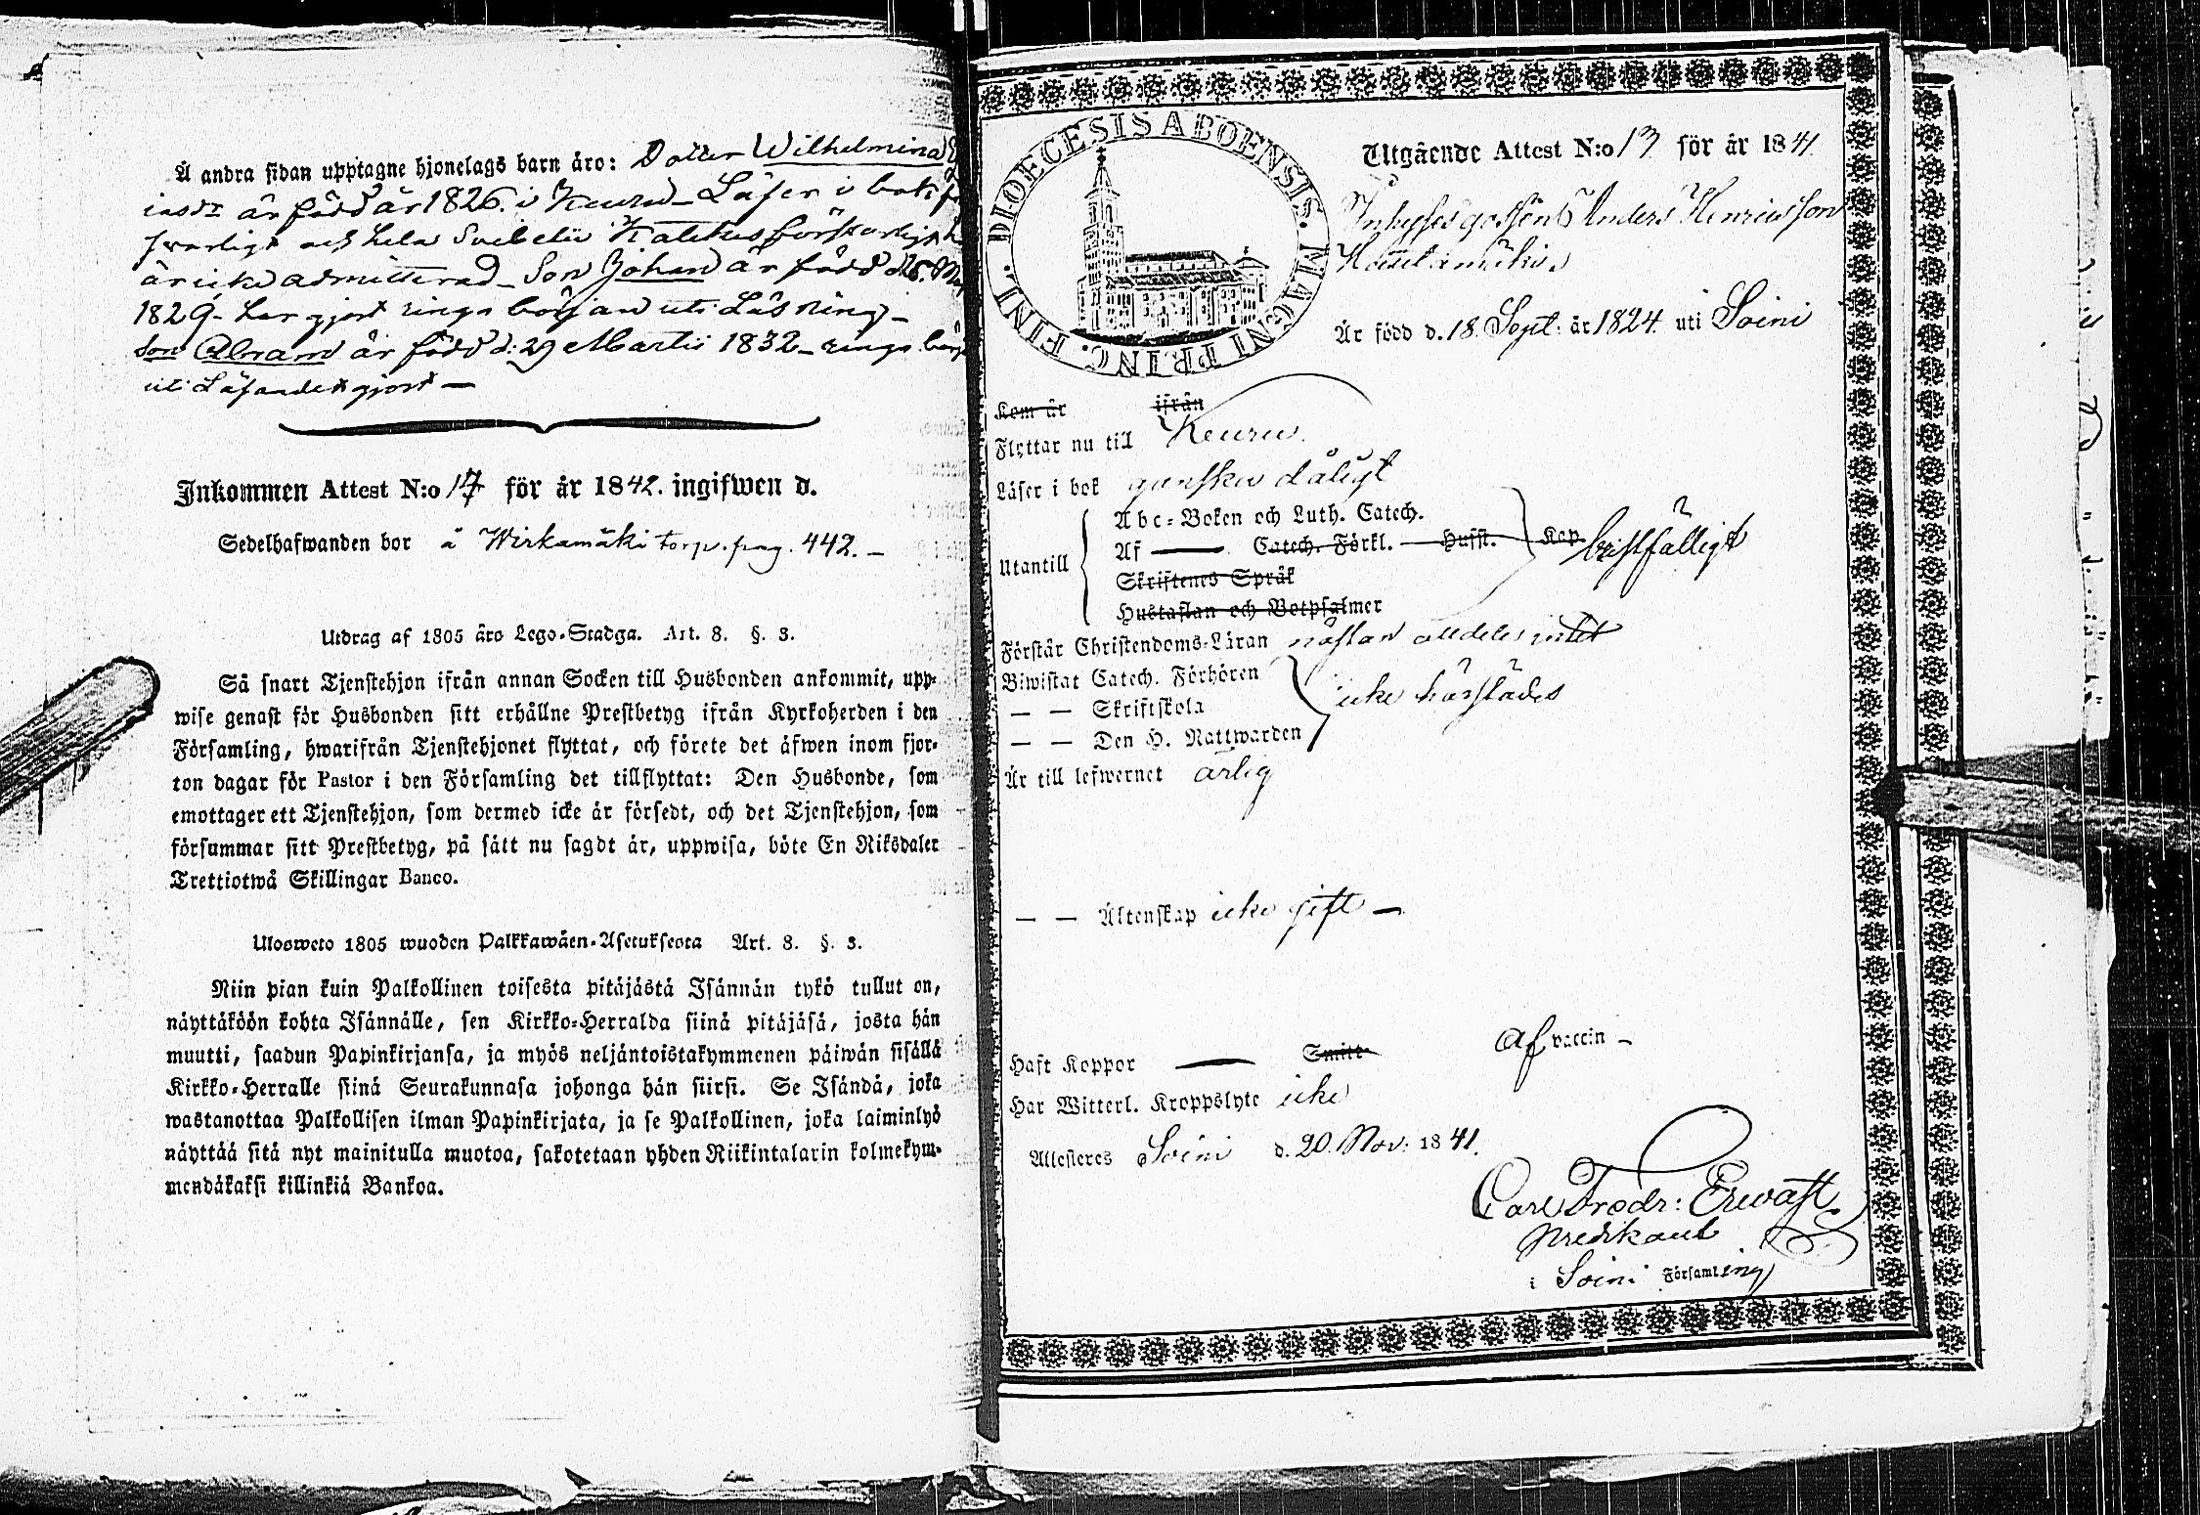 Å andra sidan upptagne hjonelags barn äro: Dotter Wilhelmina
är född år 1826. i Keuru - Läser i bok
swarligt och hela Svebelii Katekes försvarligt
är icke admitterad - Son Johan är född d 16.
1829 - har gjort ringa början uti Läsning -
Son Abram är född d: 29 Martii 1832 - ringa
uti Läsandet gjort -
Inkommen Attest N:o 17 för år 1842. ingifwen d.
Sedelhafwanden bor å Wirkamäki torp. pag. 442. -
Utdrag af 1805 års Lego-Stadga. Art. 8. §. 3.
Så snart Tjenstehjon ifrån annan Socken till Husbonden ankommit, upp-
wise genast för Husbonden sitt erhållne Prestbetyg ifrån Kyrkoherden i den
Församling, hwarifrån Tjenstehjonet flyttat, och förete det äfwen inom fjor-
ton dagar för Pastor i den Församling det tillflyttat: Den Husbonde, som
emottager ett Tjenstehjon, som dermed icke är försedt, och det Tjenstehjon, som
försummar sitt Prestbetyg, på sätt nu sagdt är, uppwisa, böte En Riksdaler
Trettiotwå Skillingar Banco.
Ulosweto 1805 wuoden Palkkawäen-Asetuksesta Art. 8. §. 3.
Niin pian kuin Palkollinen toisesta pitäjästä Isännän tykö tullut on,
näyttäköön kohta Isännälle, sen Kirkko-Herralda siinä pitäjäsä, josta hän
muutti, saadun Papinkirjansa, ja myös neljäntoistakymmenen päiwän sisällä
Kirkko-Herralle siinä Seurakunnasa johonga hän siirsi. Se Isändä, joka
wastanottaa Palkollisen ilman Papinkirjata, ja se Palkollinen, joka laiminlyö
näyttää sitä nyt mainitulla muotoa, sakotetaan yhden Riikintalarin kolmekym-
mendäkaksi killinkiä Bankoa.
DIOECESIS ABOENSIS. MAGNI PRINC. FINL.
Utgående Attest N:o 17 för år 1841
Inhyses gossen Anders Henricsson
Är född d. 18. Sept: år 1824. uti Soini
Kom år ifrån
Flyttar nu till Keuru.
Läser i bok ganska dåligt
Utantill
Abc-Boken och Luth. Catech.
Af — Catech. Förkl. — Husst. — Kap
bristfälligt
Skriftenes Språk
Hustaflan och Botpsalmer
Förstår Christendoms-Läran nästan alldeles intet
Biwistat Catech. Förhören
— — Skriftskola
icke härstädes
— — Den H. Nattwarden
Är till lefwernet ärlig
— — Äktenskap icke gift —
Haft Koppor — Smitt- Af vaccin -
Har Witterl. Kroppslyte icke
Attesteres Soini d. 20. Nov: 1841.
Carl Fredr: Erwast
Predikant
i Soini Församling